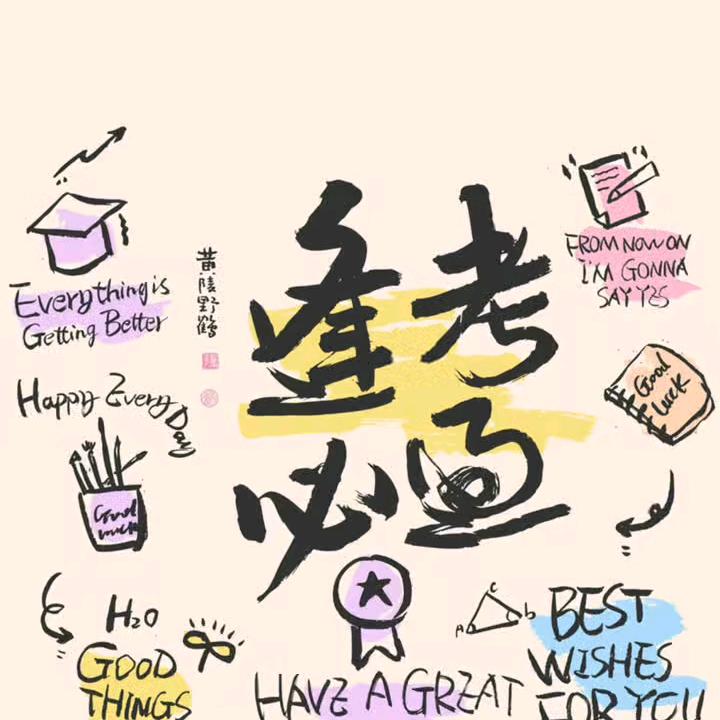 逢考
必过
黄陵野鹤
Everything is
Getting Better
Happy Every Day
Good
luck
H₂O
GOOD
THINGS
FROM NOW ON
I'M GONNA
SAY YES
Good
luck
A
C
b
BEST
WISHES
FOR YOU
HAVE A GREAT